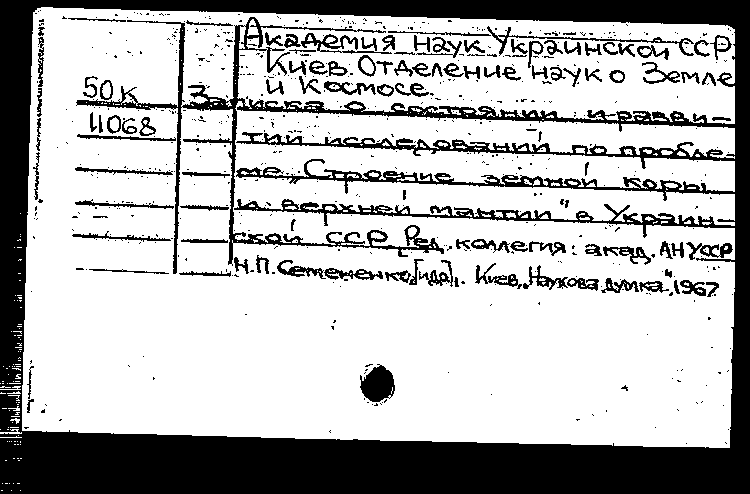 Академия наук Украинской ССР.
Киев. Отделение наук о Земле
и Космосе.
50К
11068
Записка о состоянии и разви-
тии исследований по пробле-
ме „Строение земной коры
и верхней мантии" в Украин-
ской ССР. Ред. коллегия: акад. АН УССР
Н.П. Семененко, [и др]. Киев, „Наукова думка", 1967